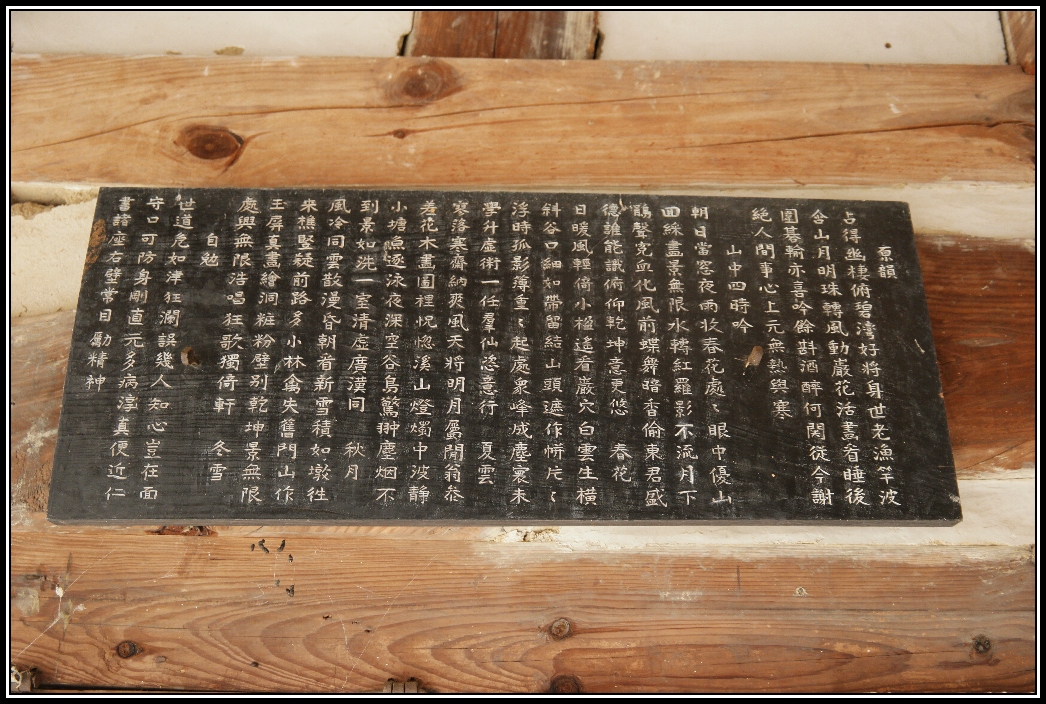 原韻
占得幽棲俯碧湾好將身世老漁竿波
含山月明珠轉風動巖花活畫看睡後
圍碁輸亦喜吟餘斟酒醉何関從今謝
絕人間事心上元無熱與寒
山中四時吟
朝日當窓夜雨收春花處〻眼中優山
回綵畵景無限水轉紅羅影不流月下
鵑聲寃血化風前蝶舞暗香偷東君盛
德誰能識俯仰乾坤意更悠 春花
日暖風輕倚小樓遙看巖穴白雲生橫
斜谷口細如帶留結山頭遮作帡片〻
浮時孤影薄重〻起處衆峰成塵寰未
學升虛術一任羣仙恣意行 夏雲
寥落寒齋納爽風天將明月屬閒翁叅
差花木畵圖裡怳惚溪山燈燭中波靜
小塘魚逐泳夜深空谷鳥驚翀塵烟不
到景如洗一室清虛廣漢同 秋月
風冷同雲散漫昏朝看新雪積如墩徃
來樵豎疑前路多小林禽失舊門山作
玉屏真畵繪洞粧粉壁別乾坤景無限
處興無限浩唱狂歌獨倚軒 冬雪
自勉
世道危如津狂瀾誤幾人知心豈在面
守口可防身剛直元多病淳真便近仁
書諸座右壁常目勵精神